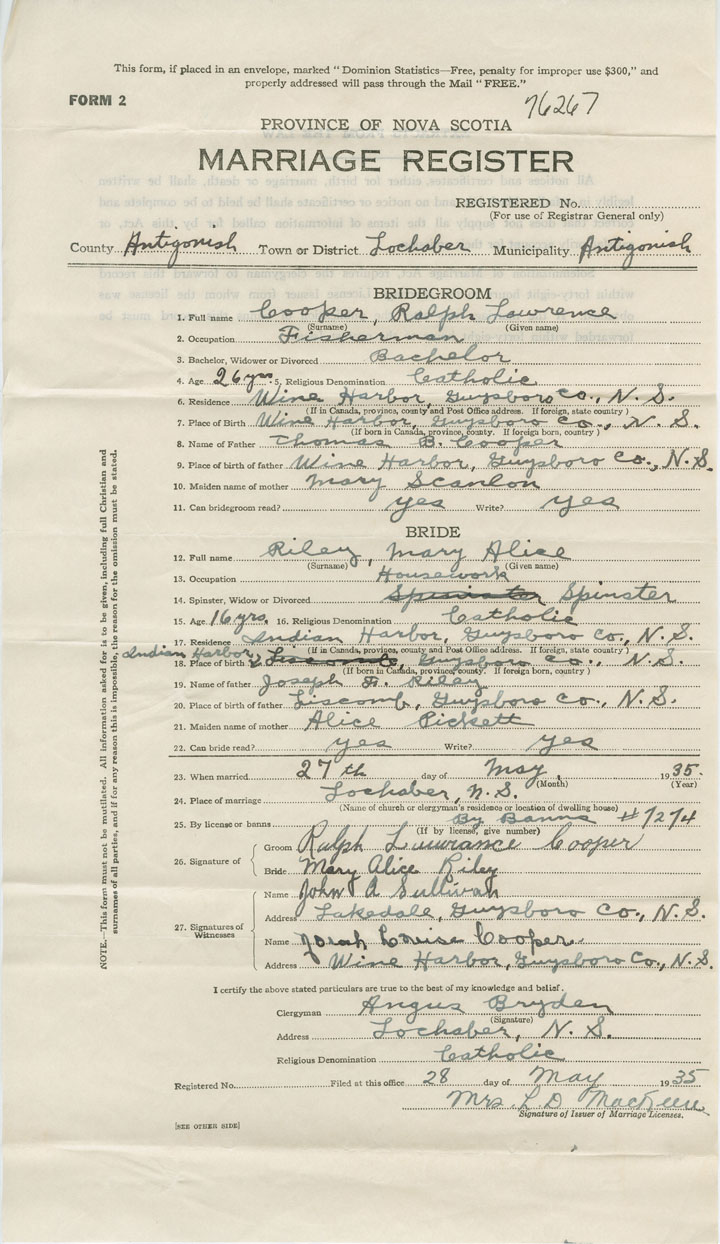 This form, if placed in an envelope, marked "Dominion Statistics—Free, penalty for improper use $300," and
properly addressed will pass through the Mail "FREE."
FORM 2
76267
PROVINCE OF NOVA SCOTIA
MARRIAGE REGISTER
REGISTERED No.
(For use of Registrar General only)
County Antigonish Town or District Lochaber Municipality Antigonish
BRIDEGROOM
1. Full name Cooper, Ralph Lawrence
(Surname) (Given name)
2. Occupation Fisherman
3. Bachelor, Widower or Divorced Bachelor
4. Age 26 yrs. 5. Religious Denomination Catholic
6. Residence Wine Harbor, Guysboro Co., N. S.
(If in Canada, province, county and Post Office address. If foreign, state country)
7. Place of Birth Wine Harbor, Guysboro Co., N. S.
(If born in Canada, province, county. If foreign born, country)
8. Name of Father Thomas B. Cooper
9. Place of birth of father Wine Harbor, Guysboro Co., N. S.
10. Maiden name of mother Mary Scanlon
11. Can bridegroom read? yes Write? yes
BRIDE
12. Full name Riley, Mary Alice
(Surname) (Given name)
13. Occupation Housework
14. Spinster, Widow or Divorced Spinster
15. Age 16 yrs. 16. Religious Denomination Catholic
17. Residence Indian Harbor, Guysboro Co., N. S.
(If in Canada, province, county and Post Office address. If foreign, state country)
Indian Harbor
18. Place of birth Liscomb, Guysboro Co., N. S.
(If born in Canada, province, county. If foreign born, country)
19. Name of father Joseph Riley
20. Place of birth of father Liscomb, Guysboro Co., N. S.
21. Maiden name of mother Alice Pickett
22. Can bride read? yes Write? yes
23. When married 27th day of May, 1935.
(Month) (Year)
24. Place of marriage Lochaber, N. S.
(Name of church or clergyman's residence or location of dwelling house)
25. By license or banns By Banns # 7274
(If by license, give number)
26. Signature of
Groom Ralph Lawrance Cooper
Bride Mary Alice Riley
27. Signatures of Witnesses
Name John A Sullivan
Address Lakedale, Guysboro Co., N. S.
Name Louise Cooper
Address Wine Harbor, Guysboro Co., N. S.
I certify the above stated particulars are true to the best of my knowledge and belief.
Clergyman Angus Bryden
(Signature)
Address Lochaber, N. S.
Religious Denomination Catholic
Registered No. Filed at this office 28 day of May 1935
Mrs. L D MacKeen
Signature of Issuer of Marriage Licenses.
[SEE OTHER SIDE]
NOTE.—This form must not be mutilated. All information asked for is to be given, including full Christian and
surnames of all parties, and if for any reason this is impossible, the reason for the omission must be stated.